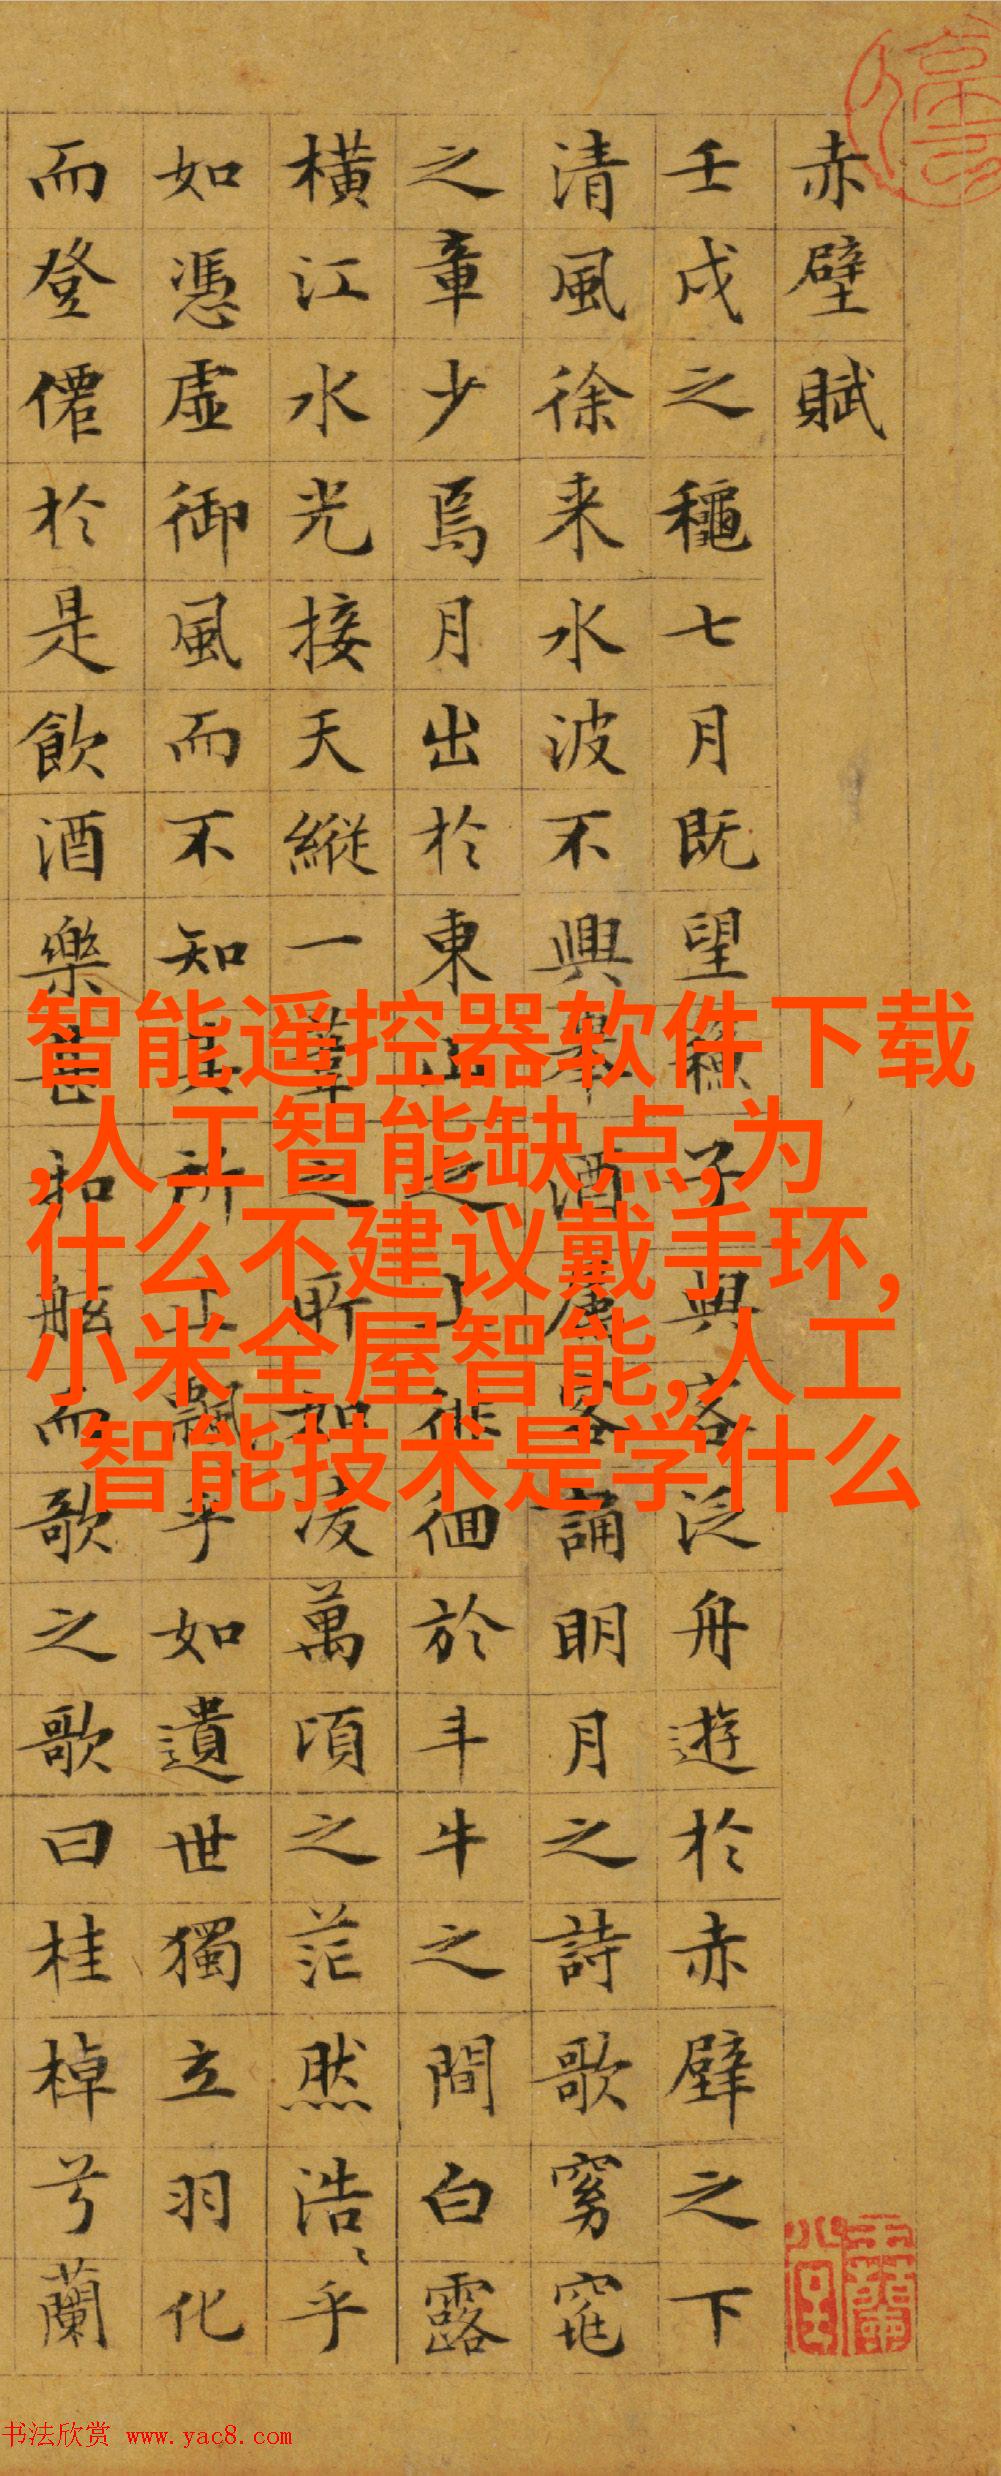 赤壁賦
壬戌之穐七月既望蘓子與客泛舟遊於赤壁之下
清風徐来水波不興舉酒屬客誦明月之詩歌窈窕
之章少焉月出於東山之上徘徊於斗牛之間白露
橫江水光接天縱一葦之所如凌萬頃之茫然浩〻乎
如憑虛御風而不知其所止飄〻乎如遺世獨立羽化
而登僊於是飲酒樂甚扣舷而歌之歌曰桂棹兮蘭
智能遥控器软件下载
,人工智能缺点,为
什么不建议戴手环,
小米全屋智能,人工
智能技术是学什么
书法欣赏 www.yac8.com